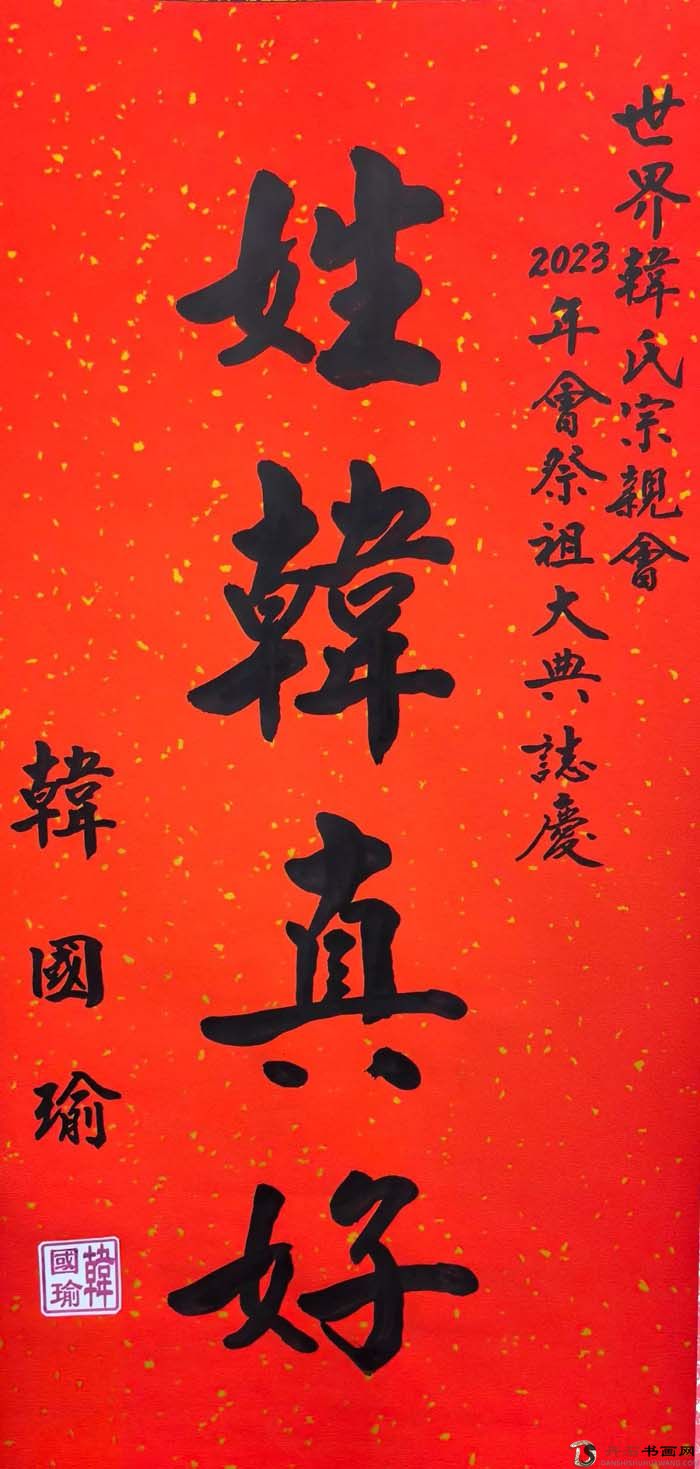 世界韓氏宗親會
2023年會祭祖大典誌慶
姓韓真好
韓國瑜
韓
國瑜
书画网
DANSHISHUHUAWANG.CO